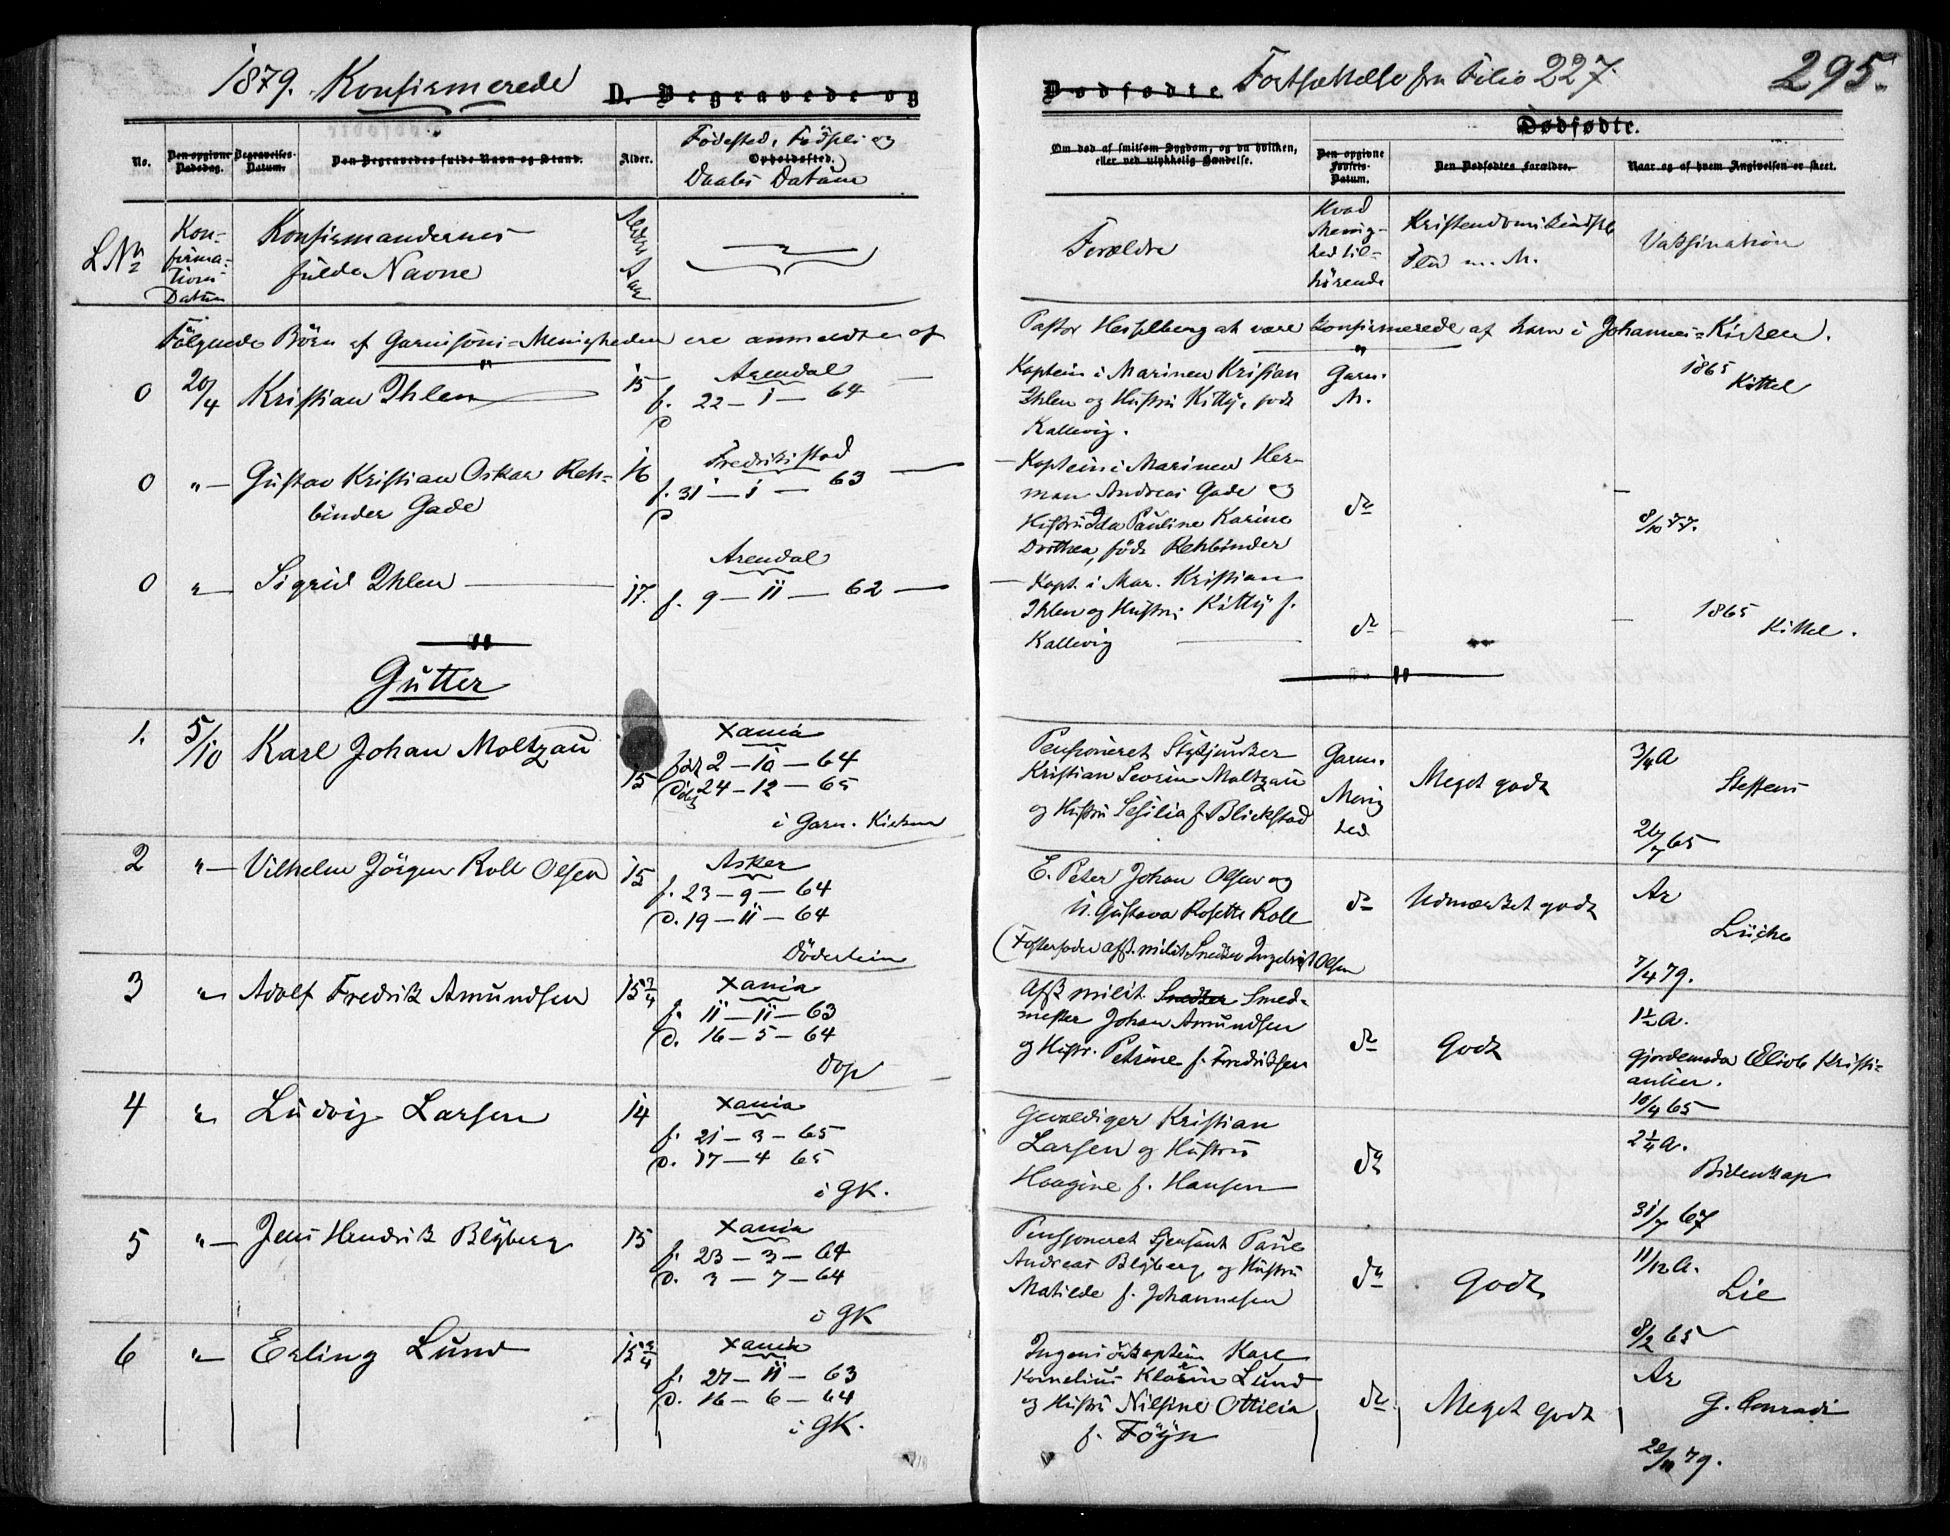 1879. Konfirmerede
D. Begravede og
Dødfødte.
Fortsættelse fra Folio 227.
295.
Dødfødte.
No.
Den opgivne Dødsdag.
Begravelses-Datum.
Den Begravedes fulde Navn og Stand.
Alder.
Fødested, Fødsels og
Opholdssted.
Daabs Datum
Om død af smitsom Sygdom, og da hvilken,
eller ved ulykkelig Hændelse.
Den opgivne
Fødsels-
Datum.
Den Dødfødtes Forældre.
Naar og af hvem Angivelsen er skeet.
L No
Kon-
firma-
tions
Datum
Konfirmandernes
fulde Navne
Alder Aar
Forældre
Hvad
Menig-
hed til-
hørende
Kristendoms Kundskb
Flid m. M.
Vaksination
Følgende Børn af Garnisons-Menigheden ere anmeldte af
Pastor Hesselberg at være konfirmerede af ham i Johannes-Kirken.
0 20/4 Kristian Ihlen 15
Arendal
f. 22 – 1 – 64
Kaptein i Marinen Kristian
Ihlen og Hustru Kitty, født
Kallevig.
Garn.
M.
1865
Kittel
0 " Gustav Kristian Oskar Reh-
binder Gade
16
Fredriksstad
f. 31 – 1 – 63
Kaptein i Marinen Her-
man Andreas Gade og
Hustru Ida Pauline Karine
Dorthea, født Rehbinder
do
8/10 77.
0 " Sigrid Ihlen 17.
Arendal
f. 9 – 11 – 62
Kapt. i Mar. Kristian
Ihlen og Hustru Kitty f.
Kallevig
do
1865
Kittel.
Gutter
1. 5/10 Karl Johan Moltzau 15
Xania
født 2 – 10 – 64
døbt 24 – 12 – 65
i Garn. Kirken
Pensioneret Stykjunker
Kristian Severin Moltzau
og Hustru Sesilia f. Blickstad
Garn.
Menig
hed
Meget godt
3/4 A
Steffens
20/7 65
2 " Vilhelm Jörgen Roll Olsen 15
Asker
f. 23 – 9 – 64
d. 19 – 11 – 64
Döderlein
E. Peter Johan Olsen og
U. Gustava Rosette Roll
(Fosterfader afsk. milit. Snedker Ingebrigt Olsen
do
Udmærket godt
Ar
Lüche
7/4 79.
3 " Adolf Fredrik Amundsen 15 3/4
Xania
f. 11 – 11 – 63
d. 16 – 5 – 64
Dop
Afsk milit. Snedker Smed-
mester Johan Amundsen
og Hustr. Petrine f. Fredriksen
do
Godt
1½ A.
Gjordemoder Elise Kristi-
ansen.
10/4 65
4 " Ludvig Larsen 14
Xania
f. 21 – 3 – 65
d. 17 – 4 65
i GK.
Gevaldiger Kristian
Larsen og Hustru
Haagine f. Hansen
do
2¼ A.
Bidenkap
31/7 67
5 " Jens Hendrik Blyberg 15
Xania
f. 23 – 3 – 64
d. 3 – 7 – 64
i GK
Pensjoneret Sjersant Paul
Andreas Blyberg og Hustru
Matilde f. Johannesen
do
Godt
11/12 A.
Lie
8/2 65
6 " Erling Lund 15 3/4
Xania
f. 27 – 11 – 63
d. 16 – 6 – 64
i GK.
Ingeniörkaptein Karl
Kornelius Klarin Lund
og Hustru Nilsine Ottilia
f. Föyn
do
Meget Godt
Ar
G. Conradi
22/11 79.